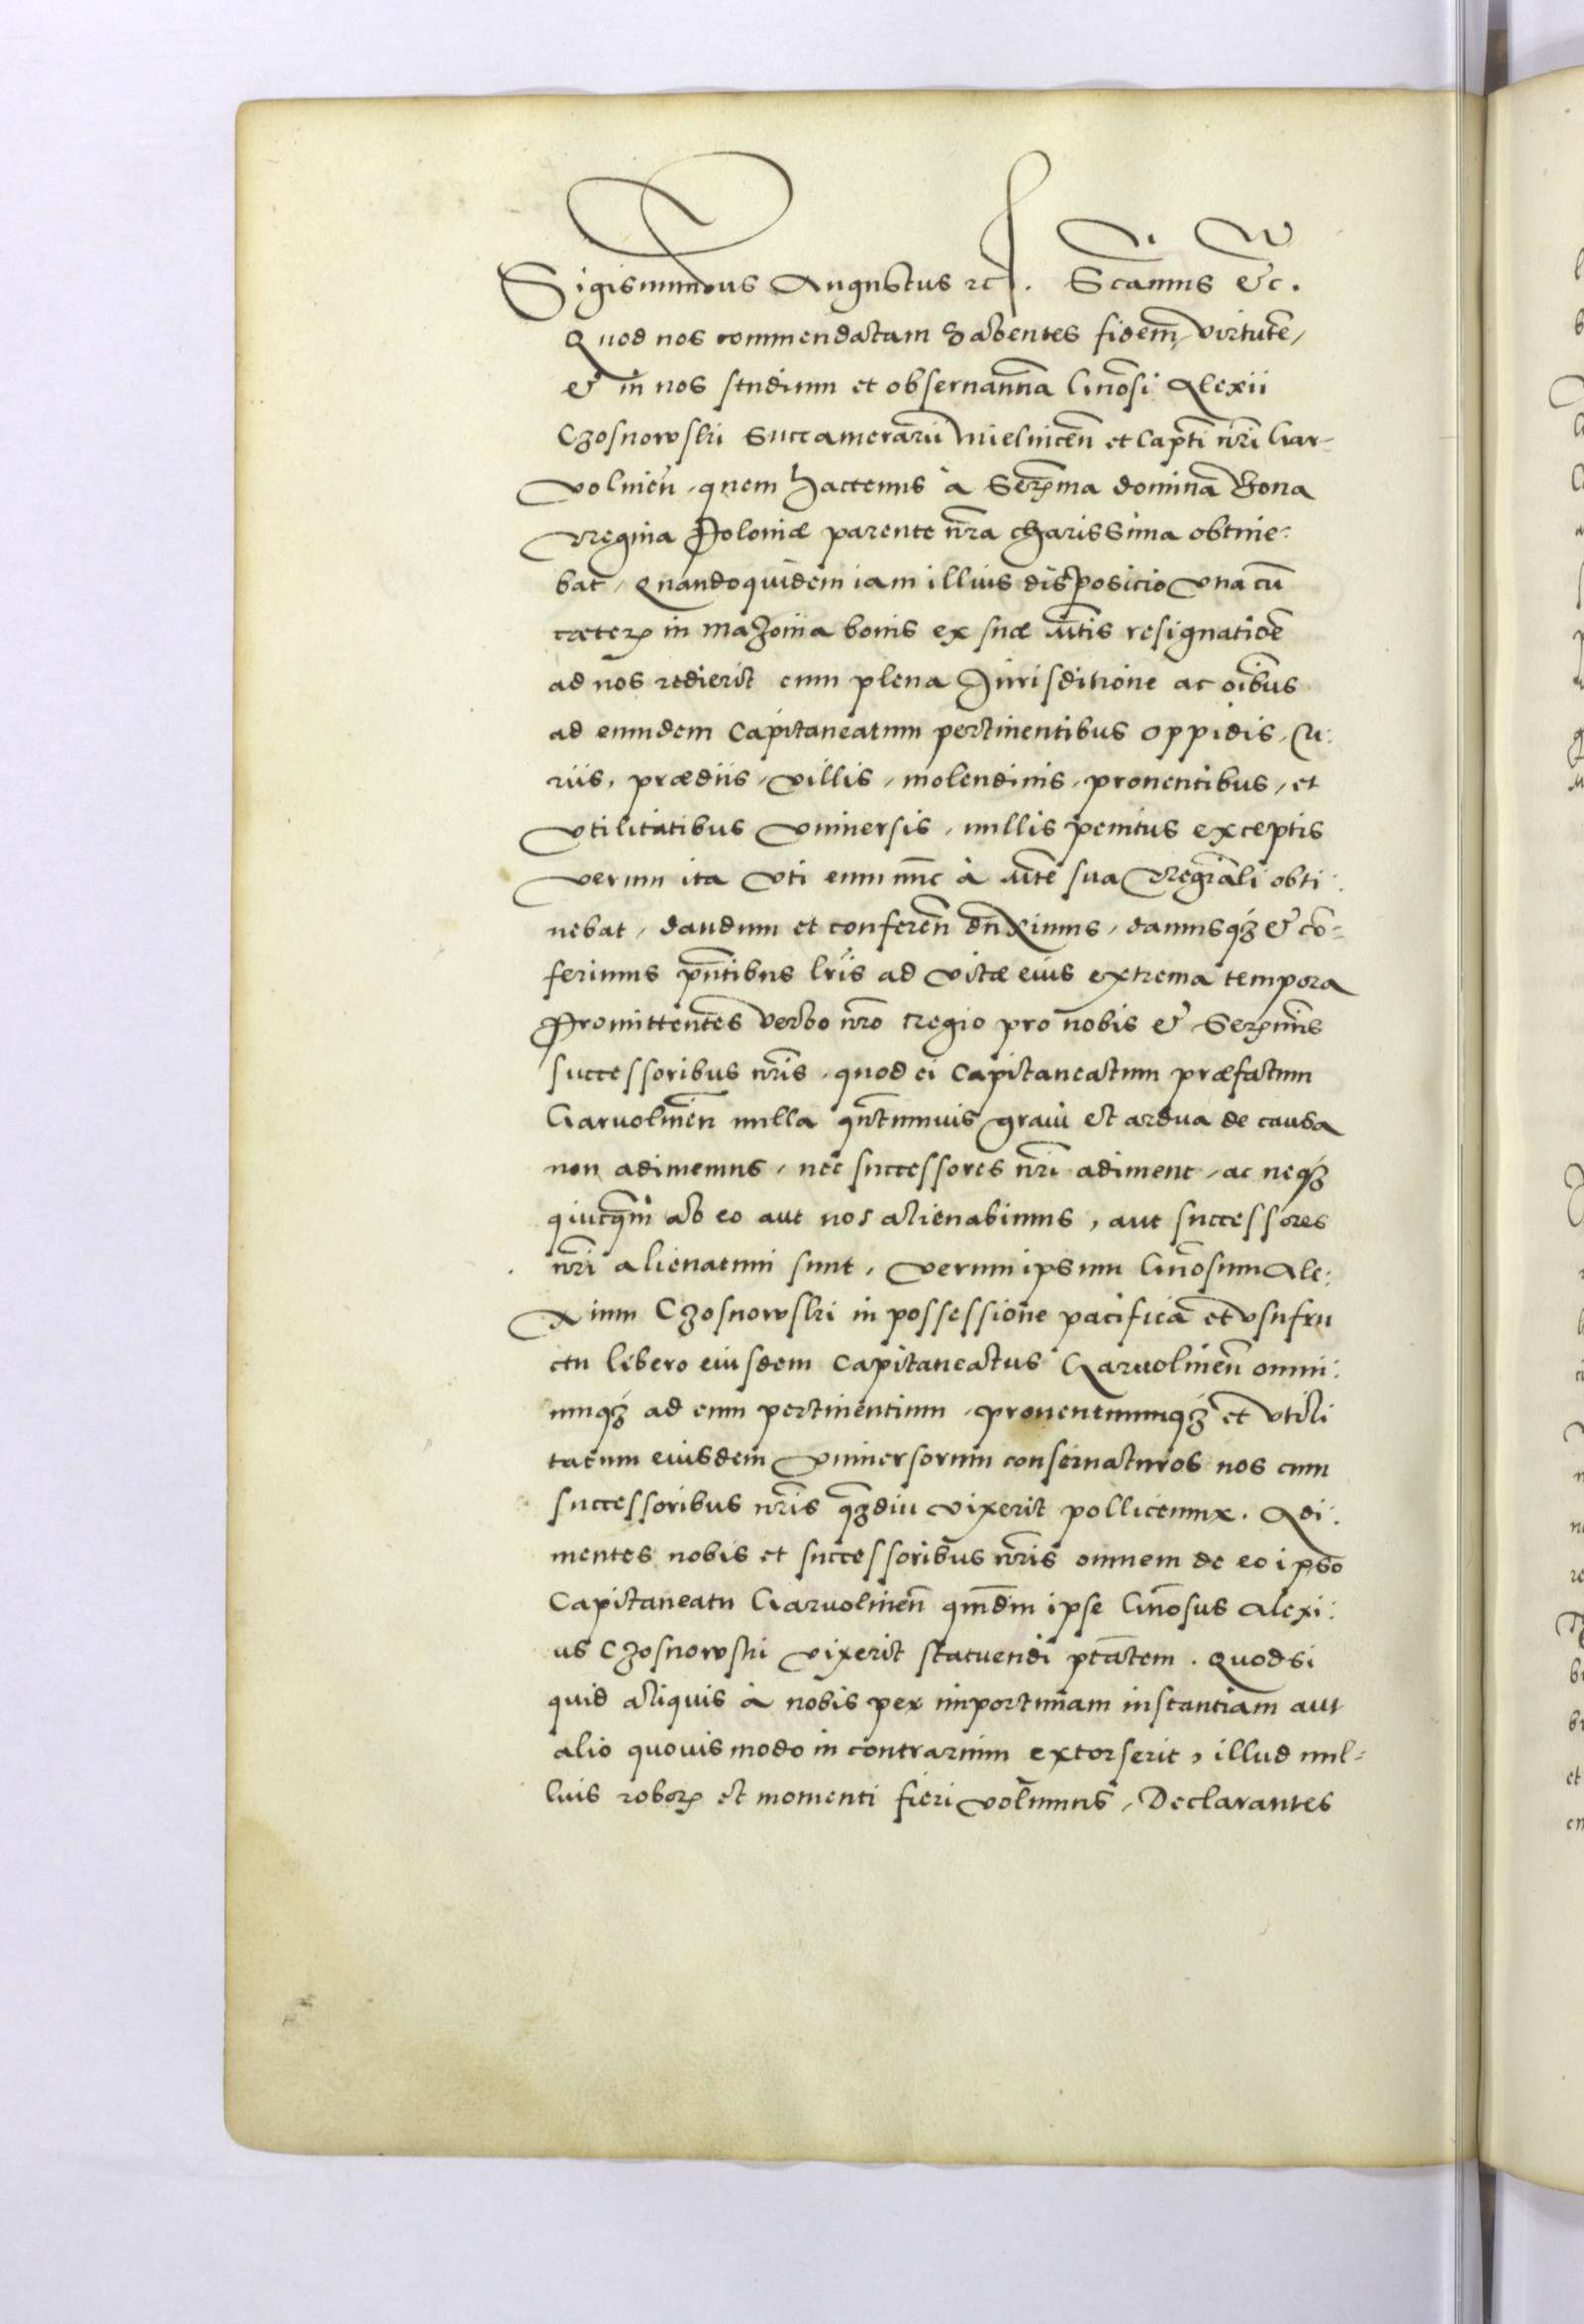 Sigismundus Augustus rc. Scamus &c.
Quod nos commendatam habentes fidem, virtutē,
& in nos studium et obseruanciā Gnōsi Alexii
Czosnowski Succamerariū Mielnicen̄ et Capti nr̄i Gar-
volinen̄, quem hactenus à Serma domina Bona
Regina Poloniæ parente nr̄a charissima obtine:
bat, Quandoquidem iam illius dispositio vna cū
cæteris in Mazouia bonis ex suæ mtis resignatiōe
ad nos redierit cum plena Jurisditione ac oībus
ad eundem Capitaneatum pertinentibus oppidis, Cu:
riis, prædiis, villis, molendinis, prouentibus, et
vtilitatibus vniuersis, nullis penitus exceptis
verum ita vti eum nunc à mte sua Regīali obti:
nebat, dandum et conferen̄ dūximus, damusq₃ & cō-
ferimus pn̄tibus lris ad vitæ eius extrema tempora
Promittentes verbo nr̄o regio pro nobis & Sermis
successoribus nr̄is, quod ei Capitaneatum præfatum
Garuolinen̄ nulla qn̄tumuis graui et ardua de causa
non adimemus, nec successores nr̄i adiment, ac neq₃
quicq̄m ab eo aut nos alienabimus, aut successores
nr̄i alienaturi sunt, verum ipsum Gnōsum Ale:
xium Czosnowski in possessione pacifica et vsufru
ctu libero eiusdem Capitaneatus Garuolinen̄ omni:
umq₃ ad eum pertinentium, prouentuumq₃ et vtili
tatum eiusdem vniuersorum conseruaturos nos cum
successoribus nr̄is q̄₃diu vixerit pollicemur. Adi:
mentes nobis et successoribus nr̄is omnem de eo ipso
Capitaneatu Garuolinen̄ qm̄dm ipse Gnōsus Alexi:
us Czosnowski vixerit statuendi ptātem. Quodsi
quid aliquis à nobis per importunam instantiam aut
alio quouis modo in contrarium extorserit, illud nul-
lius roboris et momenti fieri volumus, Declarantes